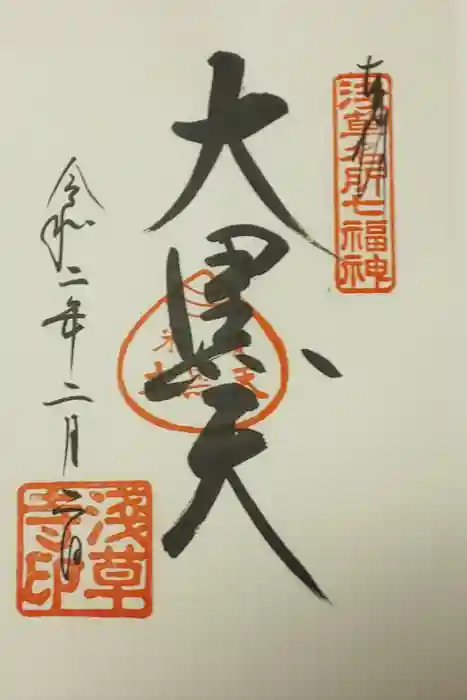 奉拝
浅草名所七福神
大黒天
令和二年二月二日
浅草寺印